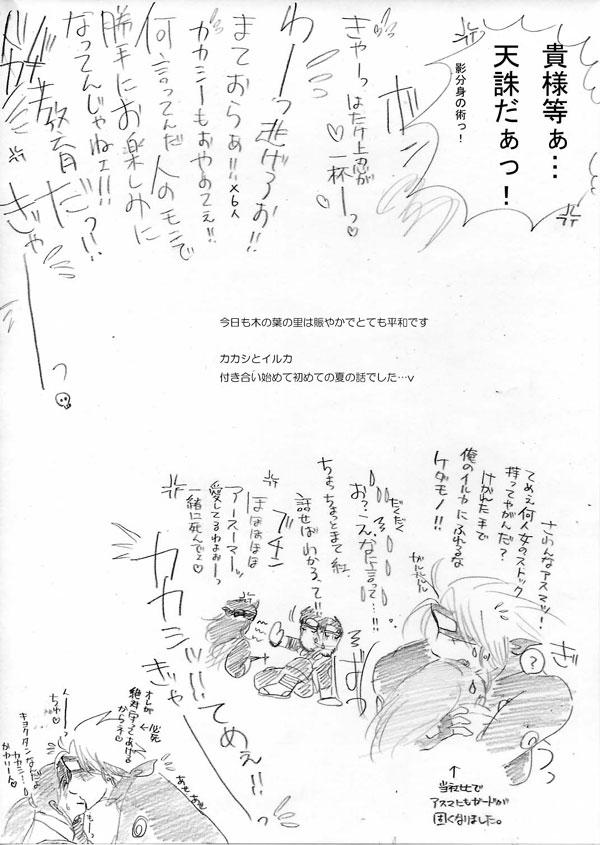 貴様等ぁ…
天誅だぁっ！
影分身の術っ！
ボンッ
きゃーっはたけ上忍が
一杯ーっ♡
わーっ逃げろお!!
まておらぁ!!×6人
カカシーもおやめてぇ!!
何言ってんだ人のモンで
勝手にお楽しみに
なってんじゃねェ!!!
教育だっ!!
ぎゃーーーっ
今日も木の葉の里は賑やかでとても平和です
カカシとイルカ
付き合い始めて初めての夏の話でした…v
さわんなアスマッ!
てめえ何人女のストック
持ってやがんだ?
けがれた手で
俺のイルカにふれるな
ケダモノ!!
ガルルルル
ぎゅうっ
?
↑
当社比で
アスマにもガードが
固くなりました。
だくだく
お?え、なに言って…!!
ちょっちょっとまて紅、
話せばわかる、て!!
ブチン
ほほほほほ
アースーマーッ
愛してるわよぉーっ
一緒に死んでぇ♡
カカシッ!!てめぇ!!
ぎゃーーーおっ
オレが
絶対守ってあげる
からネ♡
←必死
キョクタンなんだよ
カカシ…